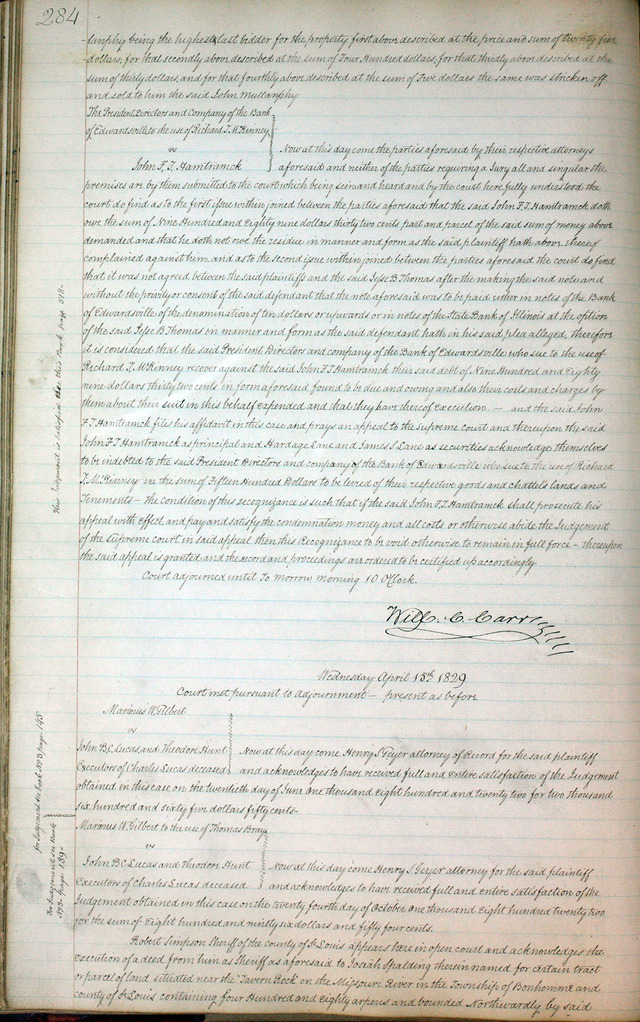 284
lanphy being the highest & last bidder for the property first above described at the price and sum of twenty five
dollars, for that secondly above described at the sum of Four Hundred dollars, for that thirdly above described at the
sum of thirty dollars, and for that fourthly above described at the sum of Five dollars the same was stricken off
and sold to him the said John Mullanphy
The President Directors and Company of the Bank
of Edwardsville to the use of Richard T. McKinney
vs
John F. T. Hamtramck
Now at this day come the parties aforesaid by their respective attorneys
aforesaid and neither of the parties requiring a Jury all and singular the
premises are by them submitted to the court which being seen and heard and by the court here fully understood the
court do find as to the first issue within joined between the parties aforesaid that the said John F. T. Hamtramck doth
owe the sum of Nine Hundred and Eighty nine dollars thirty two cents part and parcel of the said sum of money above
demanded and that he doth not owe the residue in manner and form as the said plaintiff hath above thereof
complained against him. and as to the second issue within joined between the parties aforesaid the court do find
that it was not agreed between the said plaintiffs and the said Jesse B Thomas after the making the said note and
without the privity or consent of the said defendant that the note aforesaid was to be paid either in notes of the Bank
of Edwardsville of the denomination of ten dollars or upwards or in notes of the State Bank of Illinois at the option
of the said Jesse B Thomas in manner and form as the said defendant hath in his said plea alleged, therefore
it is considered that the said President Directors and company of the Bank of Edwardsville who sue to the use of
Richard T. McKinney recover against the said John F T Hamtramck their said debt of Nine Hundred and Eighty
nine dollars thirty two cents in form aforesaid found to be due and owing and also their costs and charges by
them about their suit in this behalf expended and that they have thereof execution. — and the said John
F T Hamtramck files his affidavit in this case and prays an appeal to the supreme court and thereupon the said
John F T Hamtramck as principal and Hardage Lane and James S Lane as securities acknowledge themselves
to be indebted to the said President Directors and company of the Bank of Edwardsville who sue to the use of Richard
T. McKinney in the sum of Fifteen Hundred Dollars to be levied of their respective goods and chattels lands and
Tenements – the condition of this recognizance is such that if the said John F T Hamtramck shall prosecute his
appeal with effect, and pay and satisfy the condemnation money and all costs or otherwise abide the Judgement
of the Supreme court in said appeal then this Recognizance to be void otherwise to remain in full force – thereupon
the said appeal is granted and the record and proceedings are ordered to be certified up accordingly
Court adjourned until To morrow morning 10 O'Clock.
Will. C. Carr
Wednesday April 15th 1829
Court met pursuant to adjournment – present as before
Marinus W. Gilbert
vs
John B C Lucas and Theodore Hunt
Executors of Charles Lucas deceased
Now at this day come Henry S Geyer attorney of Record for the said plaintiff
and acknowledges to have received full and entire satisfaction of the Judgement
obtained in this case on the twentieth day of June one thousand Eight hundred and twenty two for two thousand
six hundred and sixty five dollars fifty cents–
Marinus W Gilbert to the use of Thomas Bray
vs
John B C Lucas and Theodore Hunt
Executors of Charles Lucas deceased
Now at this day come Henry S Geyer attorney for the said plaintiff
and acknowledges to have received full and entire satisfaction of the
Judgement obtained in this case on the twenty fourth day of October one thousand Eight hundred twenty two
for the sum of Eight hundred and ninety six dollars and fifty four cents.
Robert Simpson sheriff of the county of St Louis appears here in open court and acknowledges the
execution of a deed from him as Sheriff as aforesaid to Josiah Spalding therein named for certain tract
or parcel of land situated near the "Tavern Rock" on the Missouri River in the Township of Bonhomme and
county of St Louis containing four Hundred and Eighty arpens and bounded Northwardly by said
This Judgement is satisfied see this Book page
for Judgement see Book No 3 page 145
for Judgement see Book
No 3 page 189